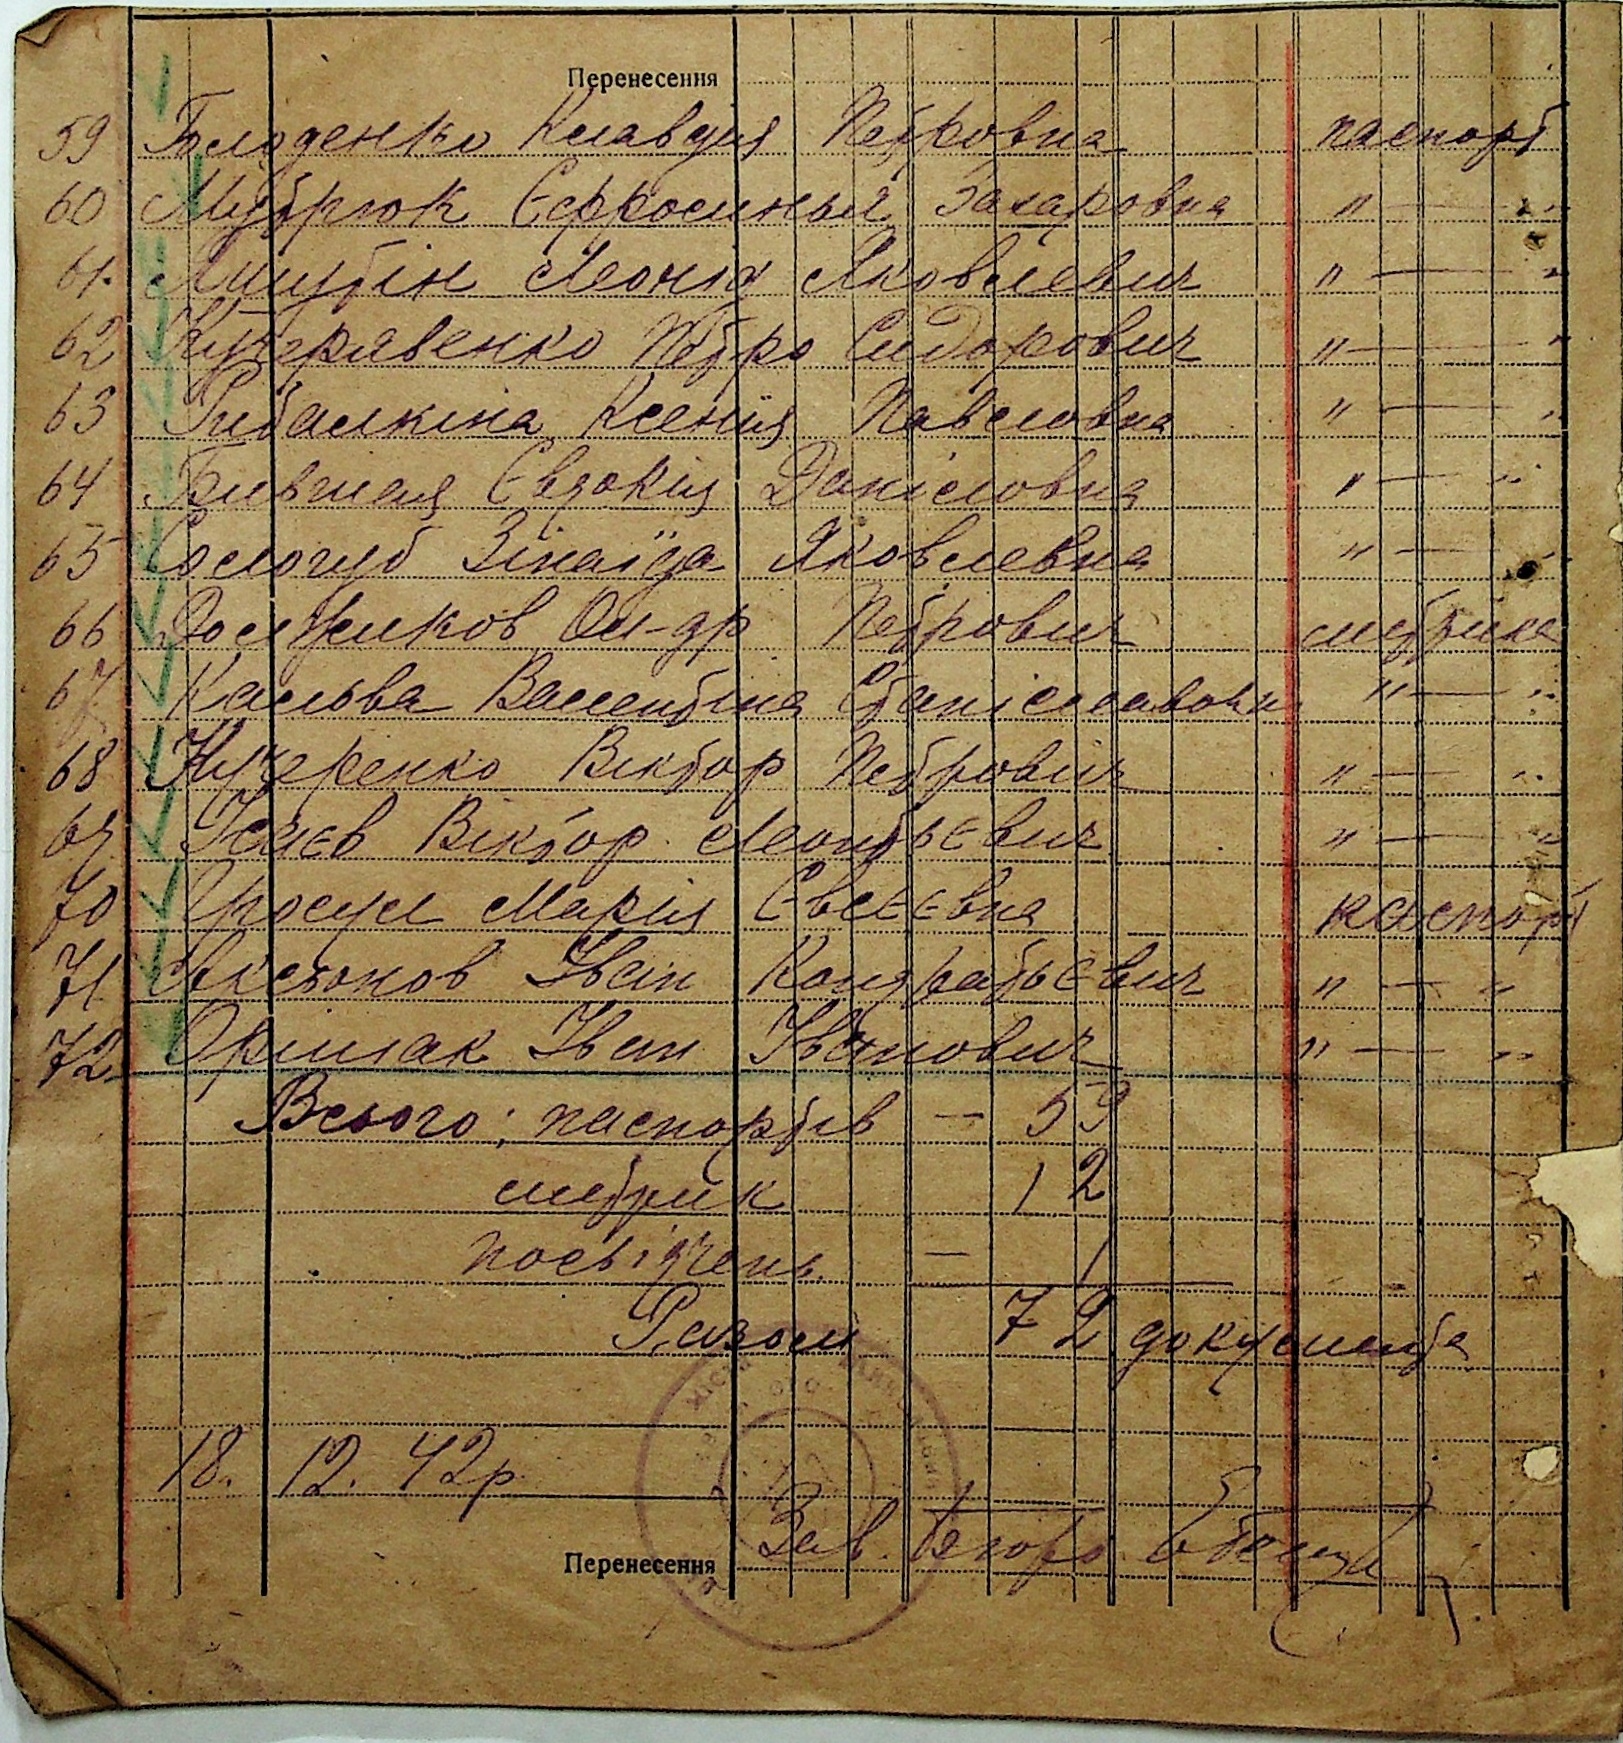 Перенесення
59 Блоденко Клавдія Петровна паспорт
60 Єфросинья Захаровна " — "
61. Леонід Яковлевич " — "
62 Кучерявенко Петро Сидорович " — "
63 Рибалкіна Ксенія Павловна " — "
64 Бившая Євдокія Данісловна " — "
65 Сологуб Зінаїда Яковлевна " — "
66 Должиков Ол-др Петрович метрика
67. Кальва Валентіна Станіславовн " — "
68 Кучеренко Віктор Петрович " — "
69. Ісаєв Віктор Леонтьєвич " — "
70 Марія Євсеєвна паспорт
71 Аксьонов Іван Кондратьєвич " — "
72 Орішак Іван Іванович " — "
Всього: паспортів — 59
метрик 12
посвідчень — 1
Разом 72 документа
18. 12. 42р.
Зав. бюро
Перенесення